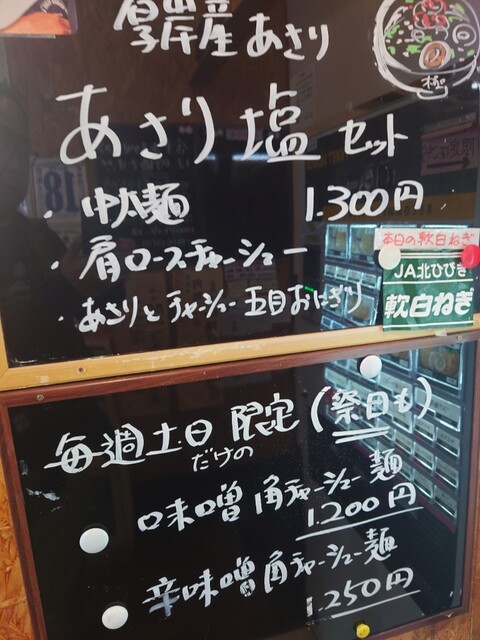 厚岸産あさり
あさり塩セット
・中太麺 1.300円
・肩ロースチャーシュー
・あさりとチャーシュー五目おにぎり
本日の軟白ねぎ
JA北ひびき
軟白ねぎ
毎週土日限定(祭日も)
だけの
味噌角チャーシュー麺
1.200円
辛味噌角チャーシュー麺
1.250円